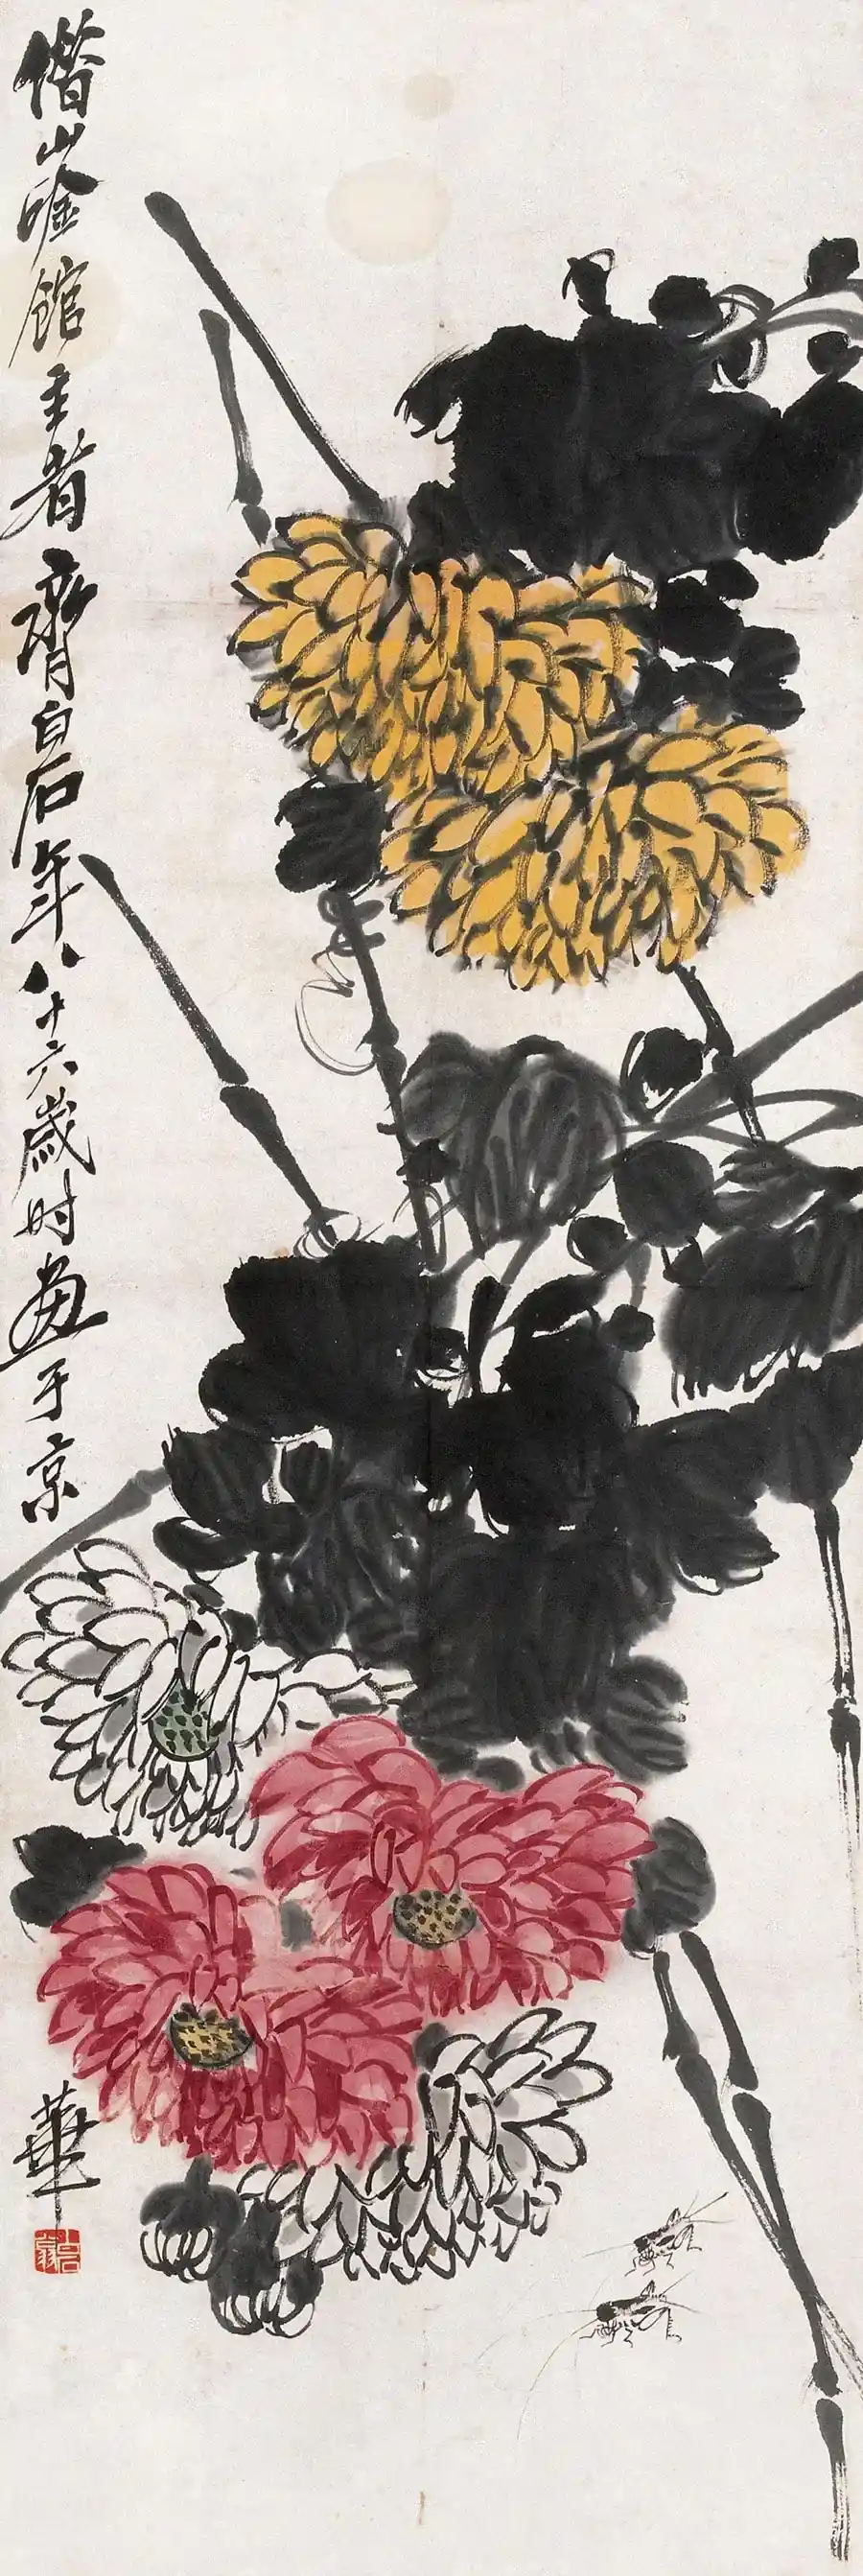 借山唫館主者齊白石年八十六歲时畫于京華
白石翁